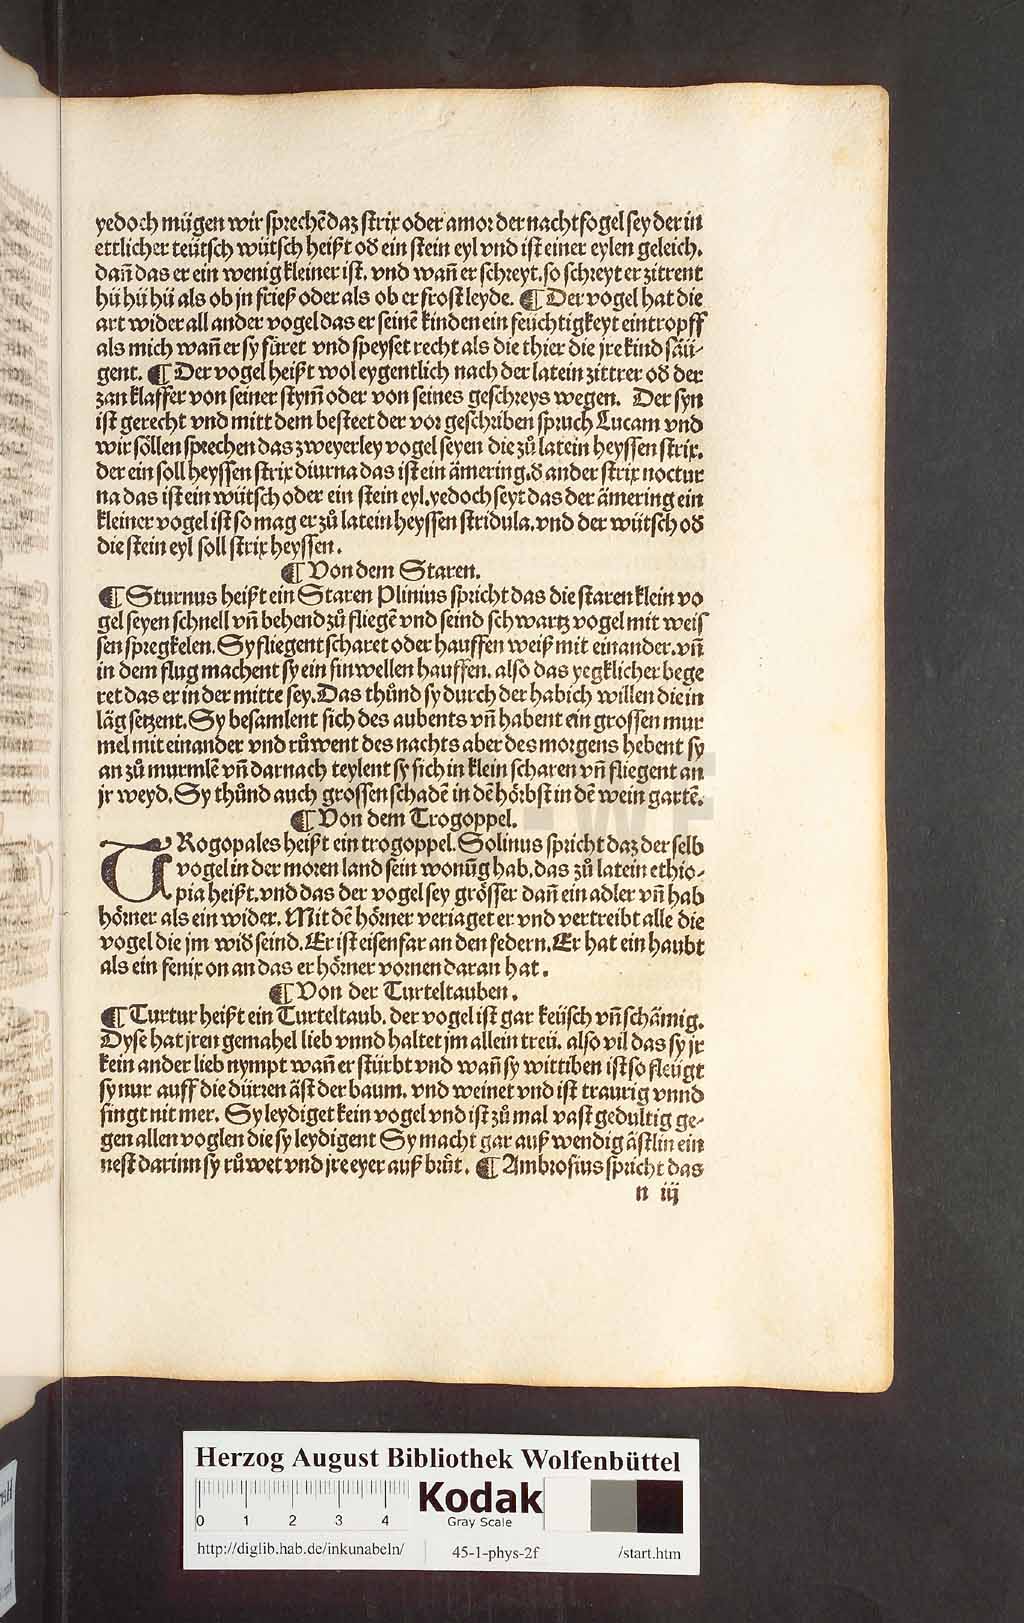 yedoch mügen wir sprechē daz strix oder amor der nachtfogel sey der in
ettlicher teütsch wütsch heißt ođ ein stein eyl vnd ist einer eylen geleich.
dañ das er ein wenig kleiner ist. vnd wañ er schreyt. so schreyt er zitrent
hü hü hü als ob jn frieß oder als ob er frost leyde. ¶ Der vogel hat die
art wider all ander vogel das er seinē kinden ein feüchtigkeyt eintropff
als mich wañ er sy füret vnd speyset recht als die thier die jre kind säü-
gent. ¶ Der vogel heißt wol eygentlich nach der latein zittrer ođ der
zan klaffer von seiner stym̄ oder von seines geschreys wegen. Der syn
ist gerecht vnd mitt dem besteet der vor geschriben spruch Lucam vnd
wir söllen sprechen das zweyerley vogel seyen die zů latein heyssen strix.
der ein soll heyssen strix diurna das ist ein ämering. đ ander strix noctur
na das ist ein wütsch oder ein stein eyl. yedoch seyt das der ämering ein
kleiner vogel ist so mag er zů latein heyssen stridula. vnd der wütsch ođ
die stein eyl soll strix heyssen.
¶ Von dem Staren.
¶ Sturnus heißt ein Staren Plinius spricht das die staren klein vo
gel seyen schnell vñ behend zů fliegē vnd seind schwartz vogel mit weis
sen spregkelen. Sy fliegent scharet oder hauffen weiß mit einander. vñ
in dem flug machent sy ein sinwellen hauffen. also das yegklicher bege
ret das er in der mitte sey. Das thůnd sy durch der habich willen die in
läg setzent. Sy besamlent sich des aubents vñ habent ein grossen mur
mel mit einander vnd růwent des nachts aber des morgens hebent sy
an zů murmlē vñ darnach teylent sy sich in klein scharen vñ fliegent an
jr weyd. Sy thůnd auch grossen schadē in dē hörbst in dē wein gartē.
¶ Von dem Trogoppel.
TRogopales heißt ein trogoppel. Solinus spricht daz der selb
vogel in der moren land sein wonūg hab. das zů latein ethio-
pia heißt. vnd das der vogel sey grösser dañ ein adler vñ hab
hörner als ein wider. Mit dē hörner veriaget er vnd vertreibt alle die
vogel die jm widđ seind. Er ist eisenfar an den federn. Er hat ein haubt
als ein fenix on an das er hörner vornen daran hat.
¶ Von der Turteltauben.
¶ Turtur heißt ein Turteltaub. der vogel ist gar keüsch vñ schämig.
Dyse hat jren gemahel lieb vnnd haltet jm allein treü. also vil das sy jr
kein ander lieb nympt wañ er stürbt vnd wañ sy wittiben ist so fleügt
sy nur auff die dürren äst der baum. vnd weinet vnd ist traurig vnnd
singt nit mer. Sy leydiget kein vogel vnd ist zů mal vast gedultig ge-
gen allen voglen die sy leydigent Sy macht gar auß wendig ästlin ein
nest darinn sy růwet vnd jre eyer auß brüt. ¶ Ambrosius spricht das
n iij
Herzog August Bibliothek Wolfenbüttel
0 1 2 3 4
Kodak
Gray Scale
http://diglib.hab.de/inkunabeln/ 45-1-phys-2f /start.htm